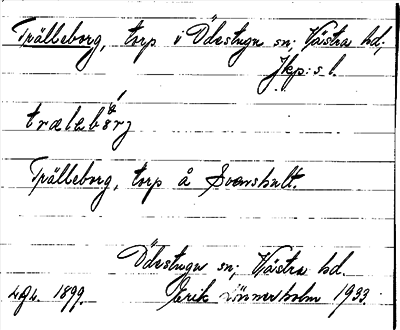 Trälleborg, torp i Ödestugu sn, Västra hd,
Jkp:s l.
trælebårj
Trälleborg, torp å Svenshult.
Ödestugu sn, Västra hd.
1899. Erik Linnerholm 1933.